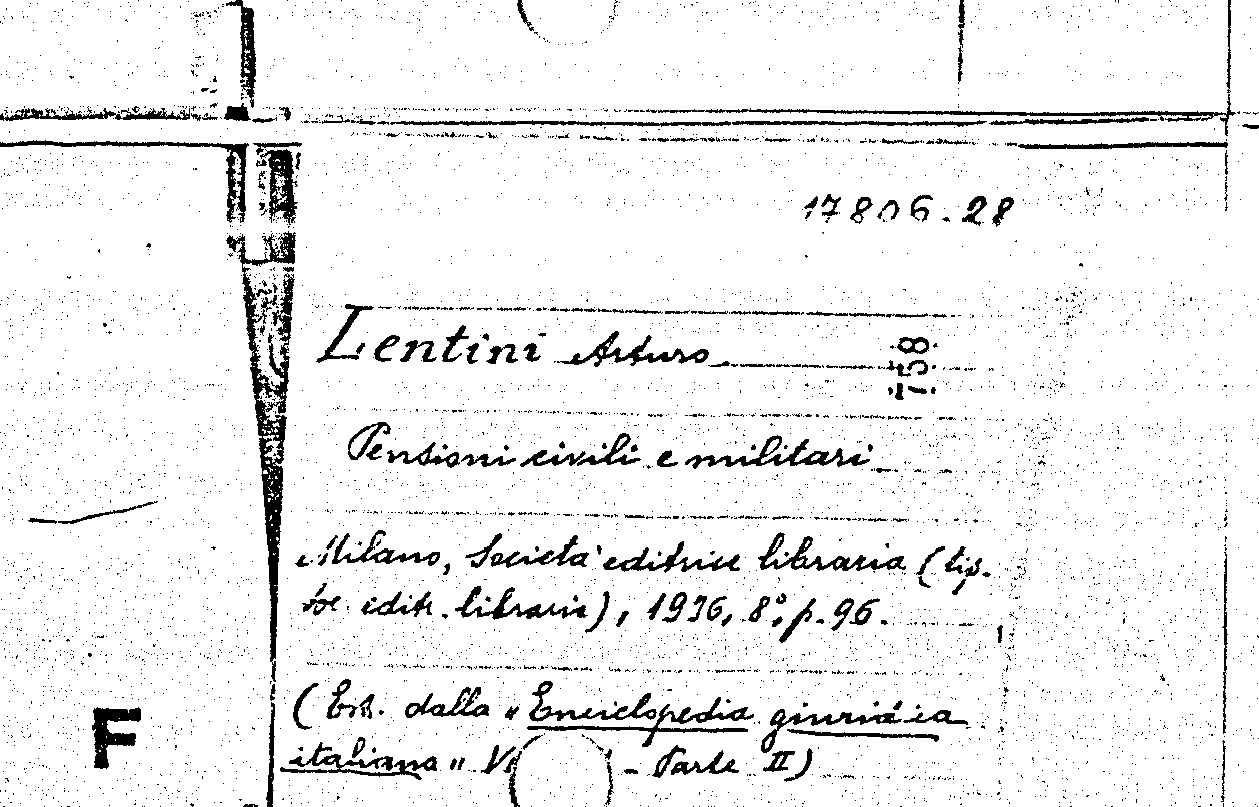 17806.28
Lentini Arturo
758
Pensioni civili e militari
Milano, Società editrice libraria (tip.
Soc. editr. libraria), 1936, 8°, p. 96.
(Estr. dalla "Enciclopedia giuridica
italiana" - Parte II)
F